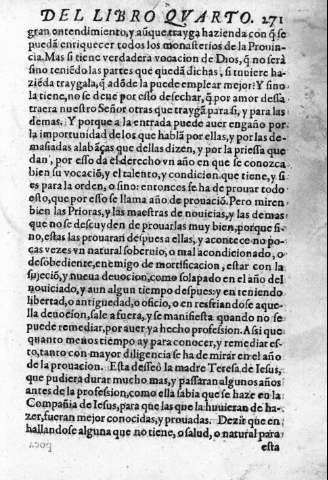 DEL LIBRO QVARTO. 271
gran ontendimiento, y aũque trayga hazienda con q̃ se
puedã enriquecer todos los monasterios de la Prouin-
cia. Mas si tiene verdadera vocacion de Dios, q̃ no será
sino teniẽdo las partes que quedã dichas, si tuuiere ha-
ziẽda traygala, q̃ adõde la puede emplear mejor? Y sino
la tiene, no se deue por esso desechar, q̃ por amor dessa
traera nuestro Señor otras que traygã para si, y para las
demas. Y porque a la entrada puede auer engaño por
la importunidad de los que hablã por ellas, y por las de-
masiadas alabãças que dellas dizen, y por la priessa que
dan, por esso da el derecho vn año en que se conozca
bien su vocaciõ, y el talento, y condicion que tiene, y si
es para la orden, o sino: entonces se ha de prouar todo
esto, que por esso se llama año de prouaciõ. Pero miren
bien las Prioras, y las maestras de nouicias, y las demas
que no se descuyden de prouarlas muy bien, porque si-
no, estas las prouaran despues a ellas, y acontece no po-
cas vezes vn natural soberuio, o mal acondicionado, o
desobediente, enemigo de mortificacion, estar con la
sujeciõ, y nueua deuocion, como solapado en el año del
nouiciado, y aun algun tiempo despues: y en teniendo
libertad, o antiguedad, o oficio, o en resfriandose aque-
lla deuocion, sale a fuera, y se manifiesta quando no se
puede remediar, por auer ya hecho profession. Assi que
quanto menos tiempo ay para conocer, y remediar es-
to, tanto con mayor diligencia se ha de mirar en el año
de la prouacion. Esta desseó la madre Teresa de Iesus,
que pudiera durar mucho mas, y passaran algunos años
antes de la profession, como ella sabia que se haze en la
Compañia de Iesus, para que las que la huuieran de ha-
zer, fueran mejor conocidas, y prouadas. Dezir que en
hallandose alguna que no tiene, o salud, o natural para
esta